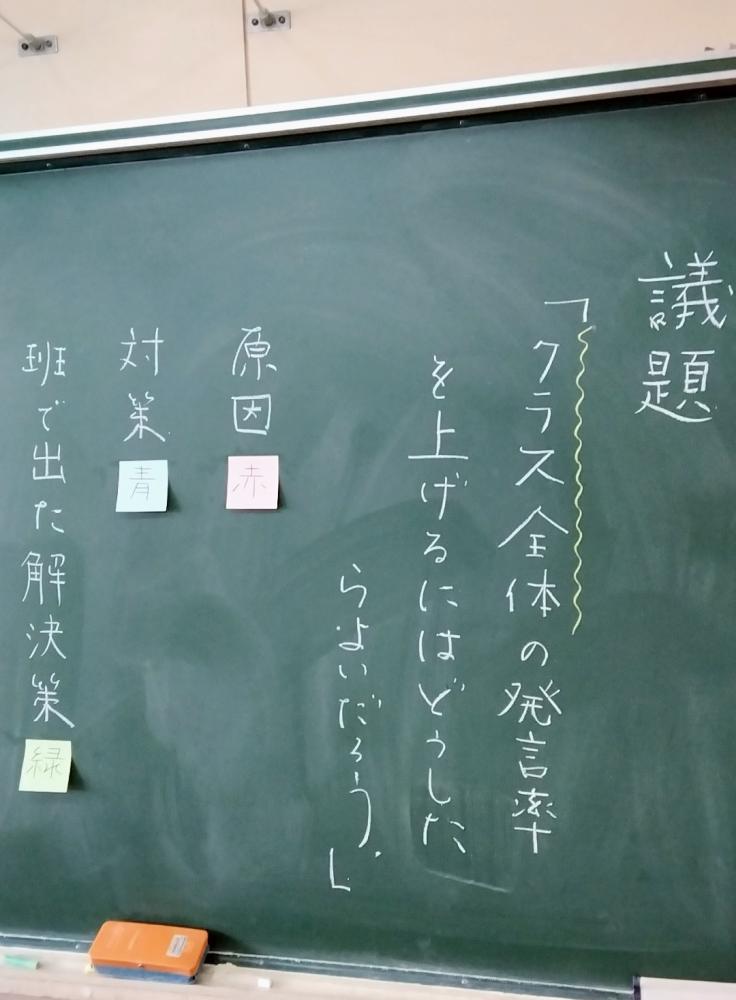 議題
「クラス全体の発言率
を上げるにはどうした
らよいだろう。」
原因
赤
対策
青
班で出た解決策
緑